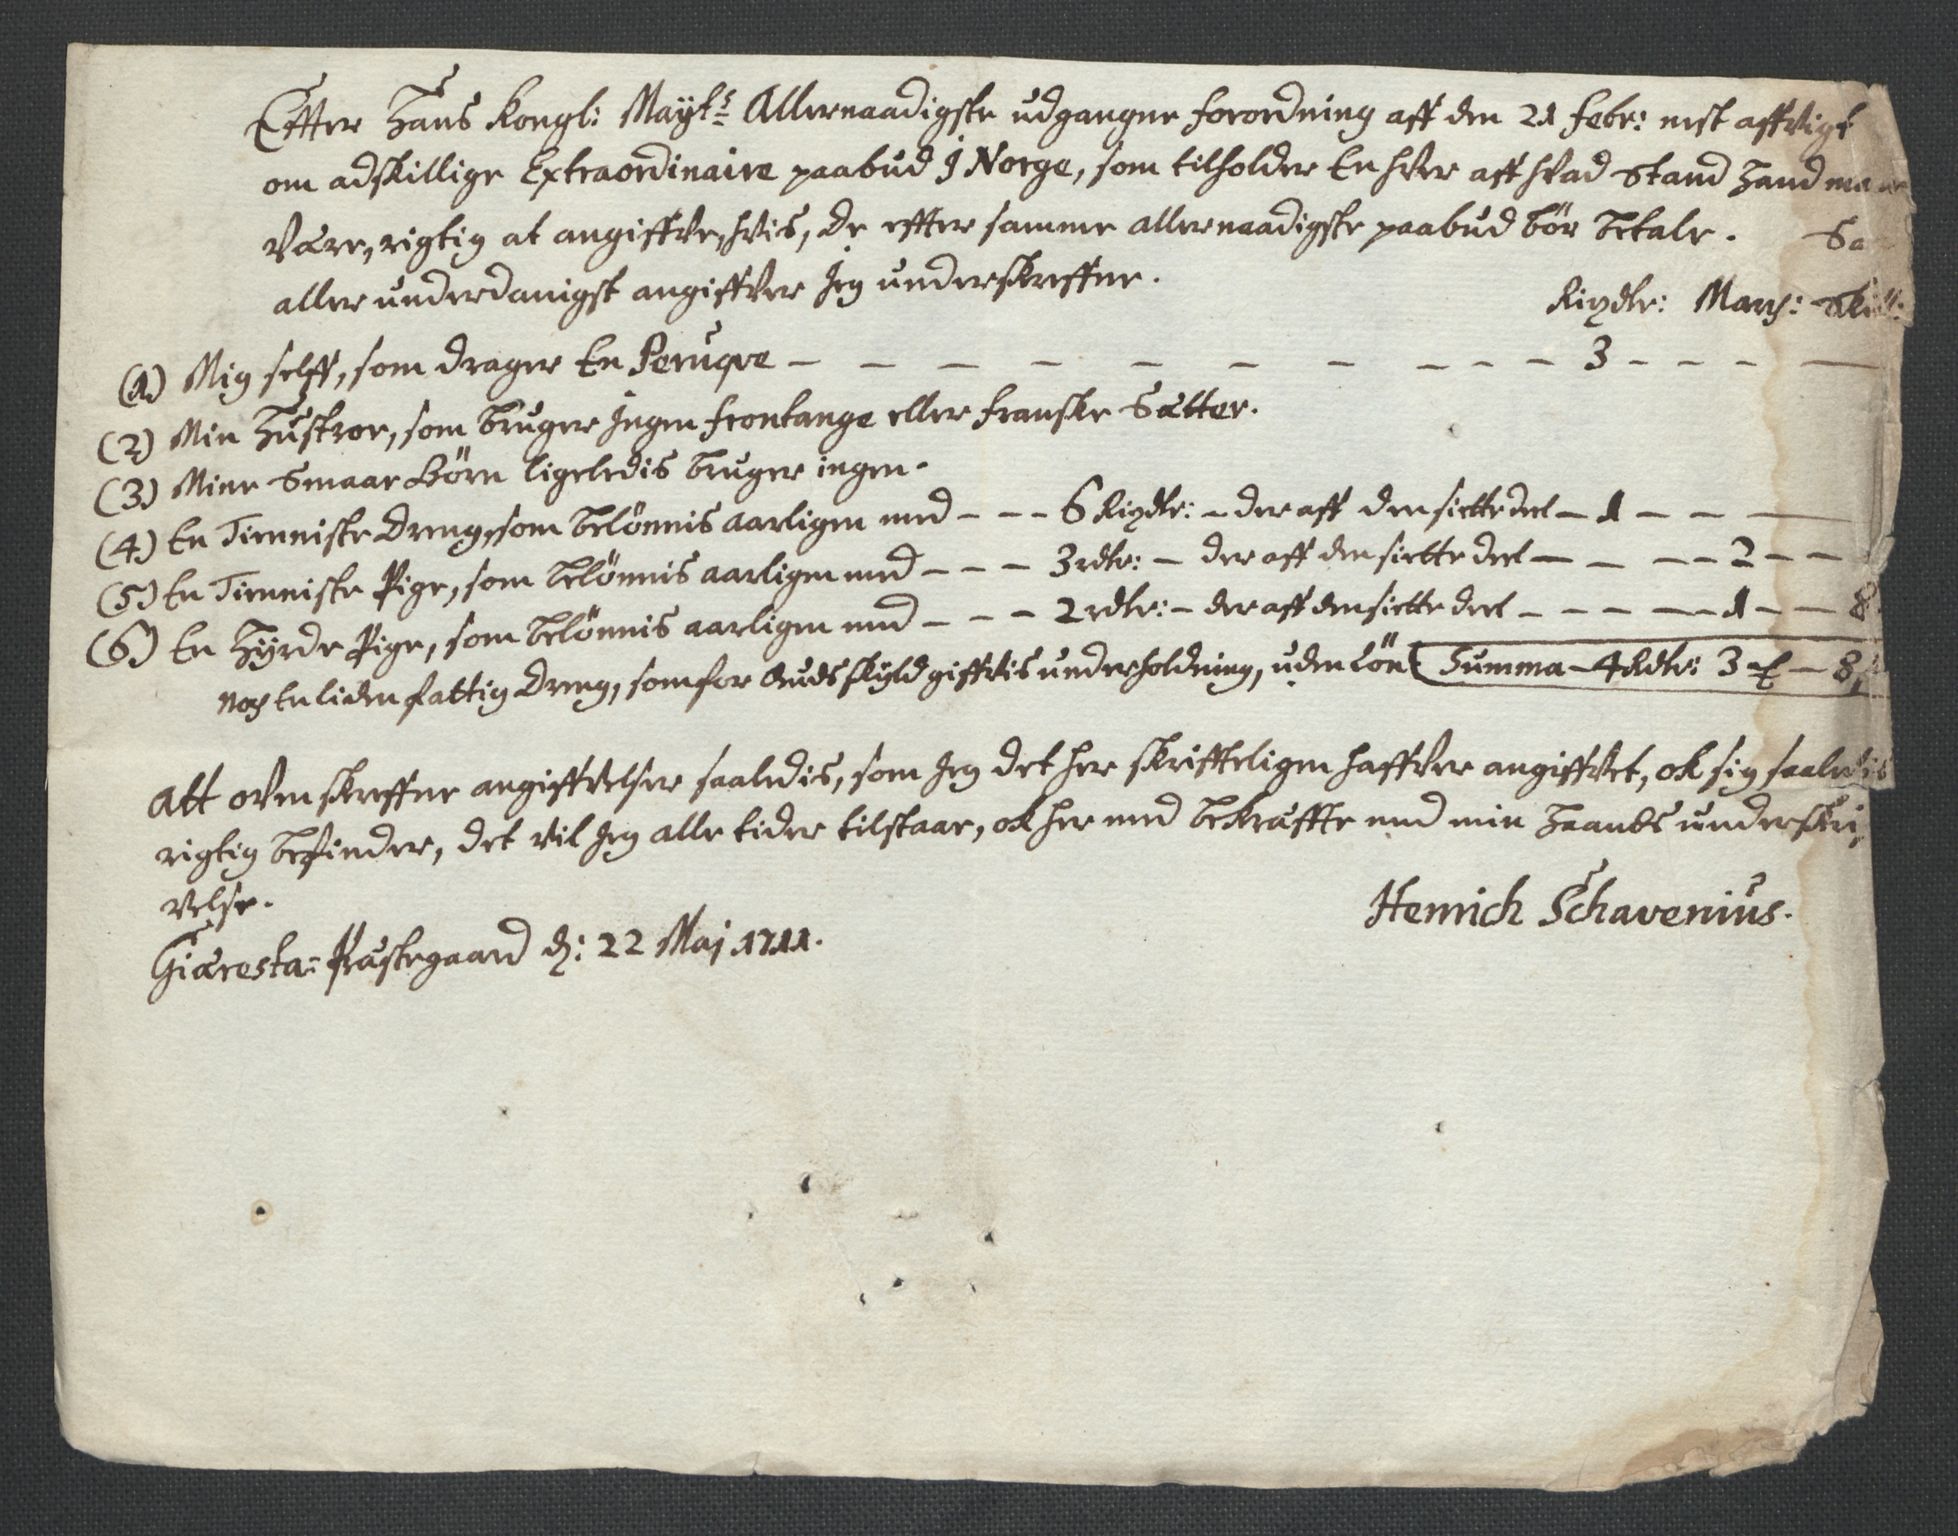 Effter Hans Kongl: Mayts Allernaadigste udgangne forordning aff den 21 Febr: nest affvigt
om adskillige Extraordinaire paabud J Norge, som tilholder En hver aff hvad Stand Hand maa
være, rigtig at angiffve, hvis, de effter samme allernaadigste paabud bör betale.
aller underdanigst angiffver Jeg underskreffne.
Rixdlr: March: Skill:
(1) Mig selff, som drager En Peruqve – – – – – – – – – – 3 – – – –
(2) Min Hustroe, som bruger Jngen frontange eller franske Sætter.
(3) Mine Smaae Börn ligeledis bruger ingen.
(4) En Tienniste Dreng, som belönnis aarligen med – – – 6 Rixdlr: – der aff den siette deel – 1 – – –
(5) En Tienniste Pige, som belönnis aarligen med – – – 3 rdlr: – der aff den siette deel – – – – 2 – –
(6) En Hyrde Pige, som belönnis aarligen med – – – 2 rdlr: – der aff den siette deel – – – – – 1 – – 8
noch En liden fattig Dreng, som for Guds skyld giffvis underholdning, uden Lön Summa – 4 Rdlr: 3 ℳ – 8
Att ovenskreffne angiffvelser saaledis, som Jeg det her skrifftligen haffver angiffvet, ok sig saaledis
rigtig befinder, det vil Jeg alle tider tilstaae, ok her med bekræffte med min Haands underskri,
velse.
Henrich Schavenius.
Giæresta= Præstegaard d: 22 Maj 1711.